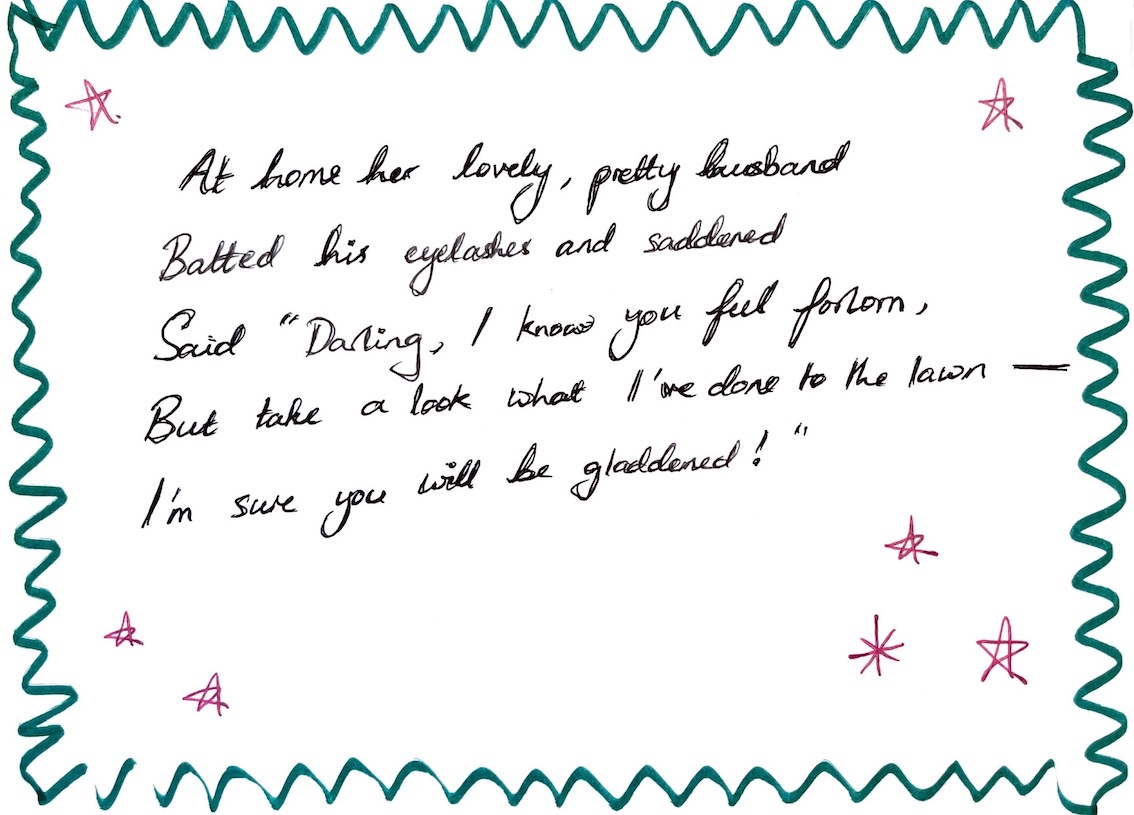 At home her lovely, pretty husband
Batted his eyelashes and saddened
Said "Darling, I know you feel forlorn,
But take a look what I've done to the lawn —
I'm sure you will be gladdened!"